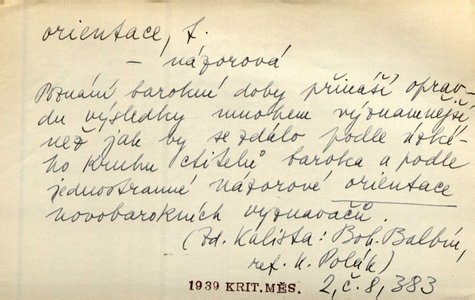 orientace, f.
– názorová
Poznání barokní doby přináší oprav-
du výsledky mnohem významnější
než jak by se zdálo podle úzké-
ho kruhu ctitelů baroka a podle
jednostranné názorové orientace
novobarokních vyznavačů.
(Zd. Kalista: Boh. Balbín,
ref. K. Polák)
1939 KRIT. MĚS. 2, č. 8, 383